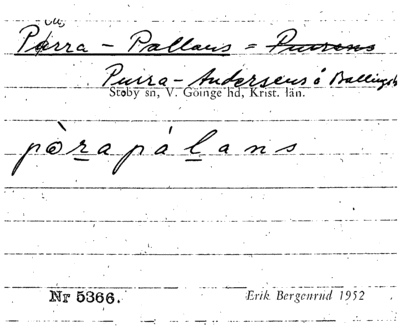 Purra - Pallans = Purrens
Purra - Andersens å Ballings
Stoby sn, V. Göinge hd, Krist. län.
pòrapálans
Nr 5366.
Erik Bergenrud 1952